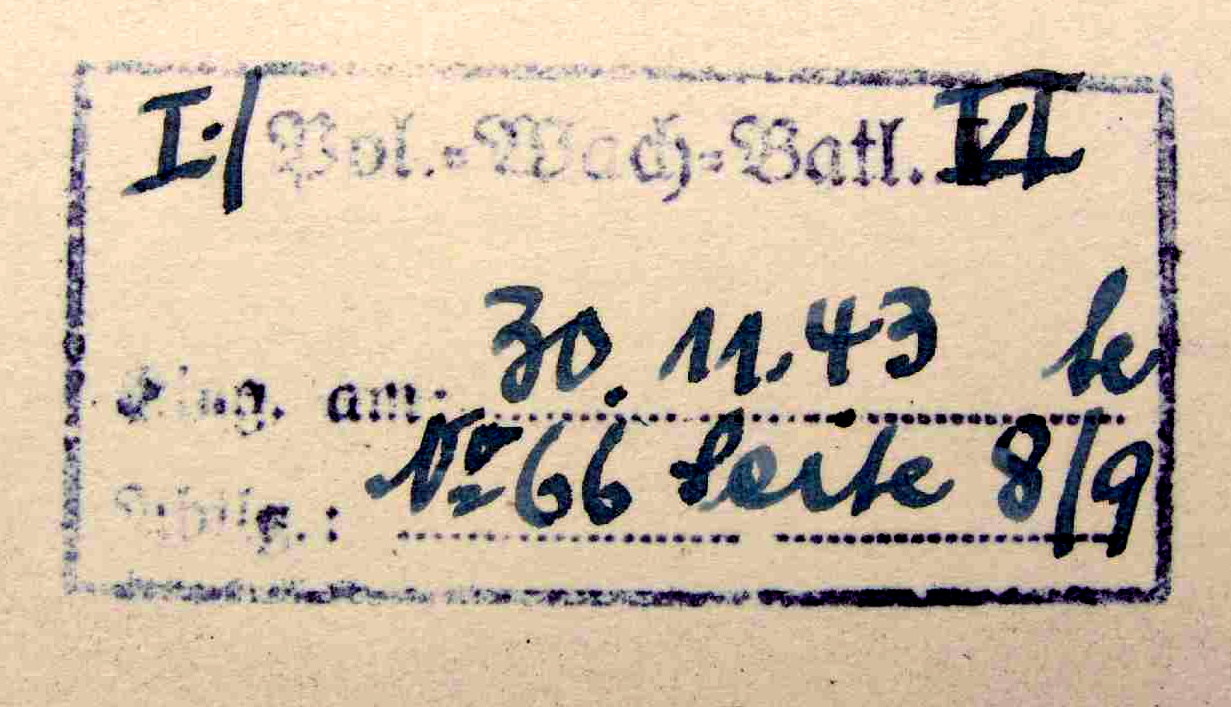 I./ Pol.-Wach-Batl. VI
30. 11. 43
Eing. am:
№ 66 Seite 8/9